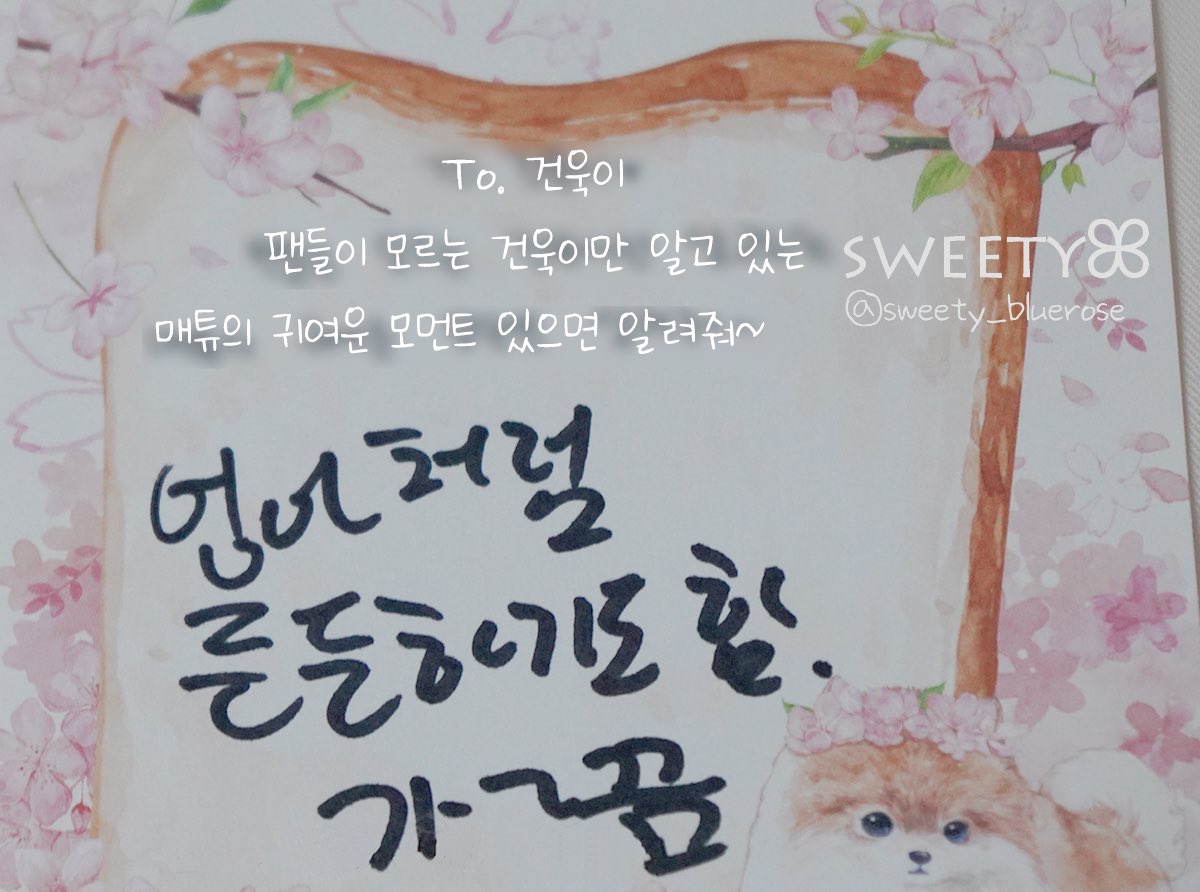 To. 건욱이
팬들이 모르는 건욱이만 알고 있는
매튜의 귀여운 모먼트 있으면 알려줘~
SWEETY
@sweety_bluerose
엄어처럼
든든하기도 함.
가끔